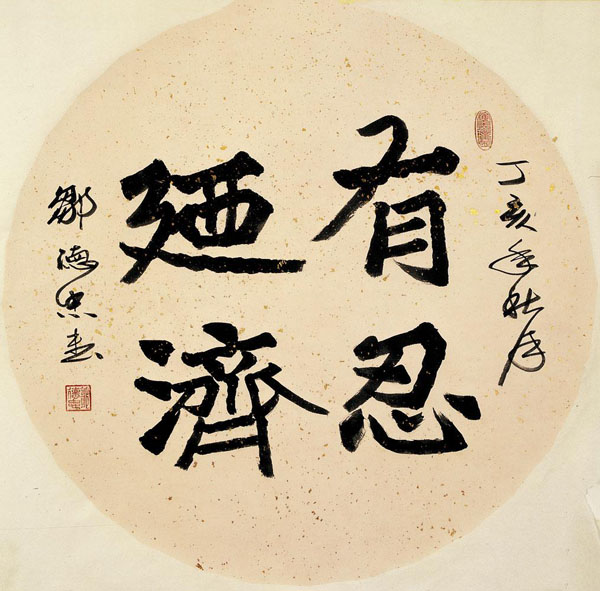 丁亥年秋月
有忍
廼濟
鄒德忠書